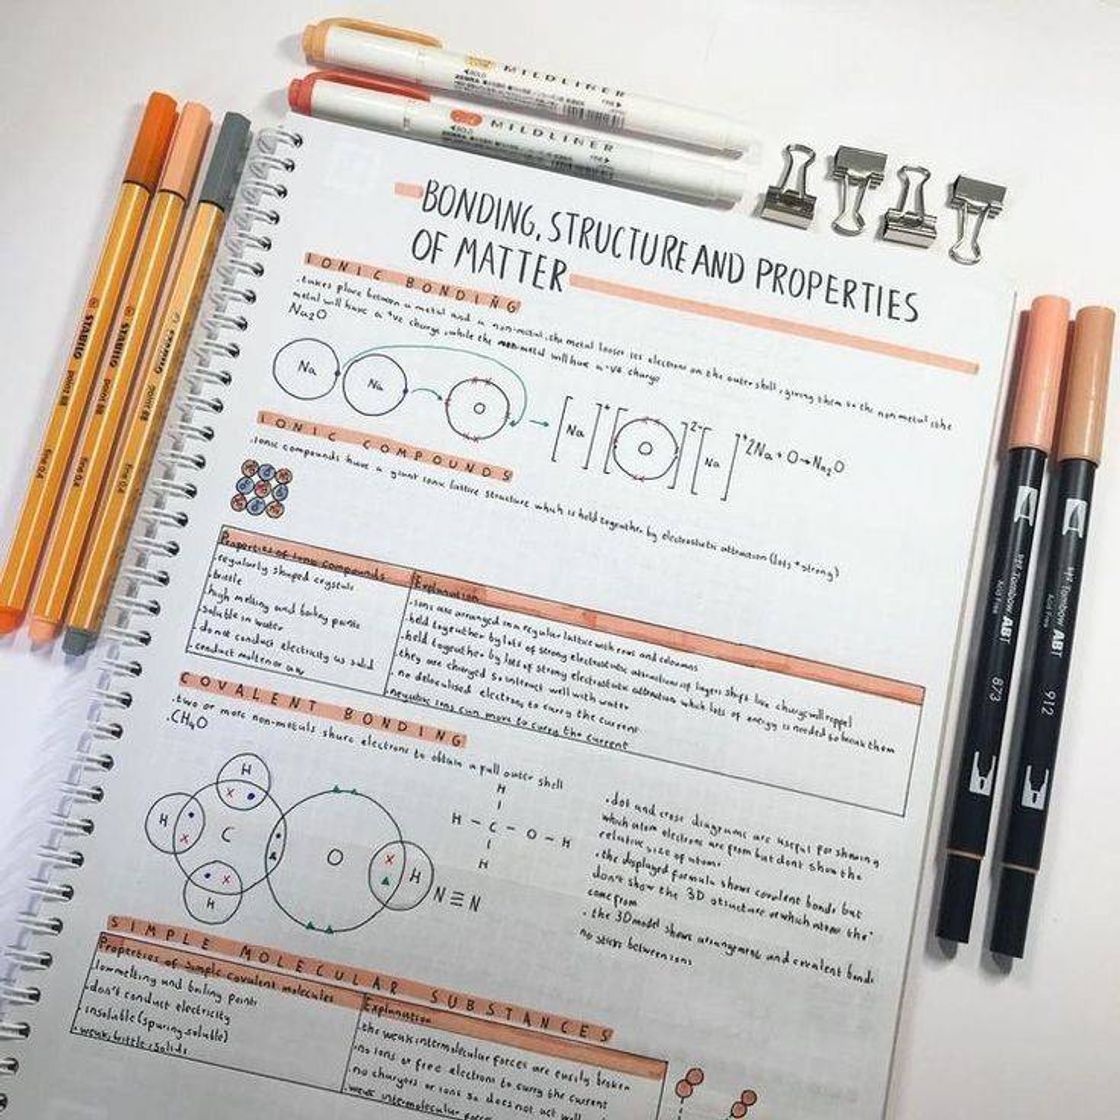 MILDLINER
ZEBRA
MILDLINER
ZEBRA
STABILO point 88 fine 0.4
STABILO point 88 fine 0.4
STABILO point 88 fine 0.4
Tombow ABT 873
Tombow ABT 912
BONDING, STRUCTURE AND PROPERTIES
OF MATTER
IONIC BONDING
.takes place between a metal and a non-metal. the metal looses its electrons on the outer shell, giving them to the non metal. the
metal will have a +ve charge, while the nonmetal will have a -ve charge
Na₂O
Na
Na
O
[Na]⁺ [O]²⁻ [Na]⁺ 2Na + O → Na₂O
IONIC COMPOUNDS
.ionic compounds have a giant ionic lattice structure which is held together by electrostatic attraction (lots + strong)
Properties of ionic compounds
.regularly shaped crystals
.brittle
.high melting and boiling points
.soluble in water
.do not conduct electricity as solid
.conduct molten or aq
Explanation
.ions are arranged in a regular lattice with rows and coloumns
.held together by lots of strong electrostatic attractions, if layers shift like charges will reppel
.held together by lots of strong electrostatic attraction which lots of energy is needed to break them
.they are charged so interact well with water
.no delocalised electrons to carry the current
.negative ions can move to carry the current
COVALENT BONDING
.two or more non-metals share electrons to obtain a full outer shell
.CH₄O
H
H
C
O
H
H
H
H - C - O - H
H
N≡N
.dot and cross diagrams are useful for showing
which atom electrons are from but dont show the
relative size of atoms
.the displayed formula shows covalent bonds but
don't show the 3D structure or which atom the
come from
.the 3D model shows arrangement and covalent bonds
no sticks between ions
SIMPLE MOLECULAR SUBSTANCES
Properties of simple covalent molecules
.low melting and boiling points
.don't conduct electricity
.insoluble (sparing soluble)
.weak, brittle, solids
Explanation
.the weak intermolecular forces are easily broken
.no ions or free electrons to carry the current
.no chargers or ions so does not act well
.weak inter-molecular forces